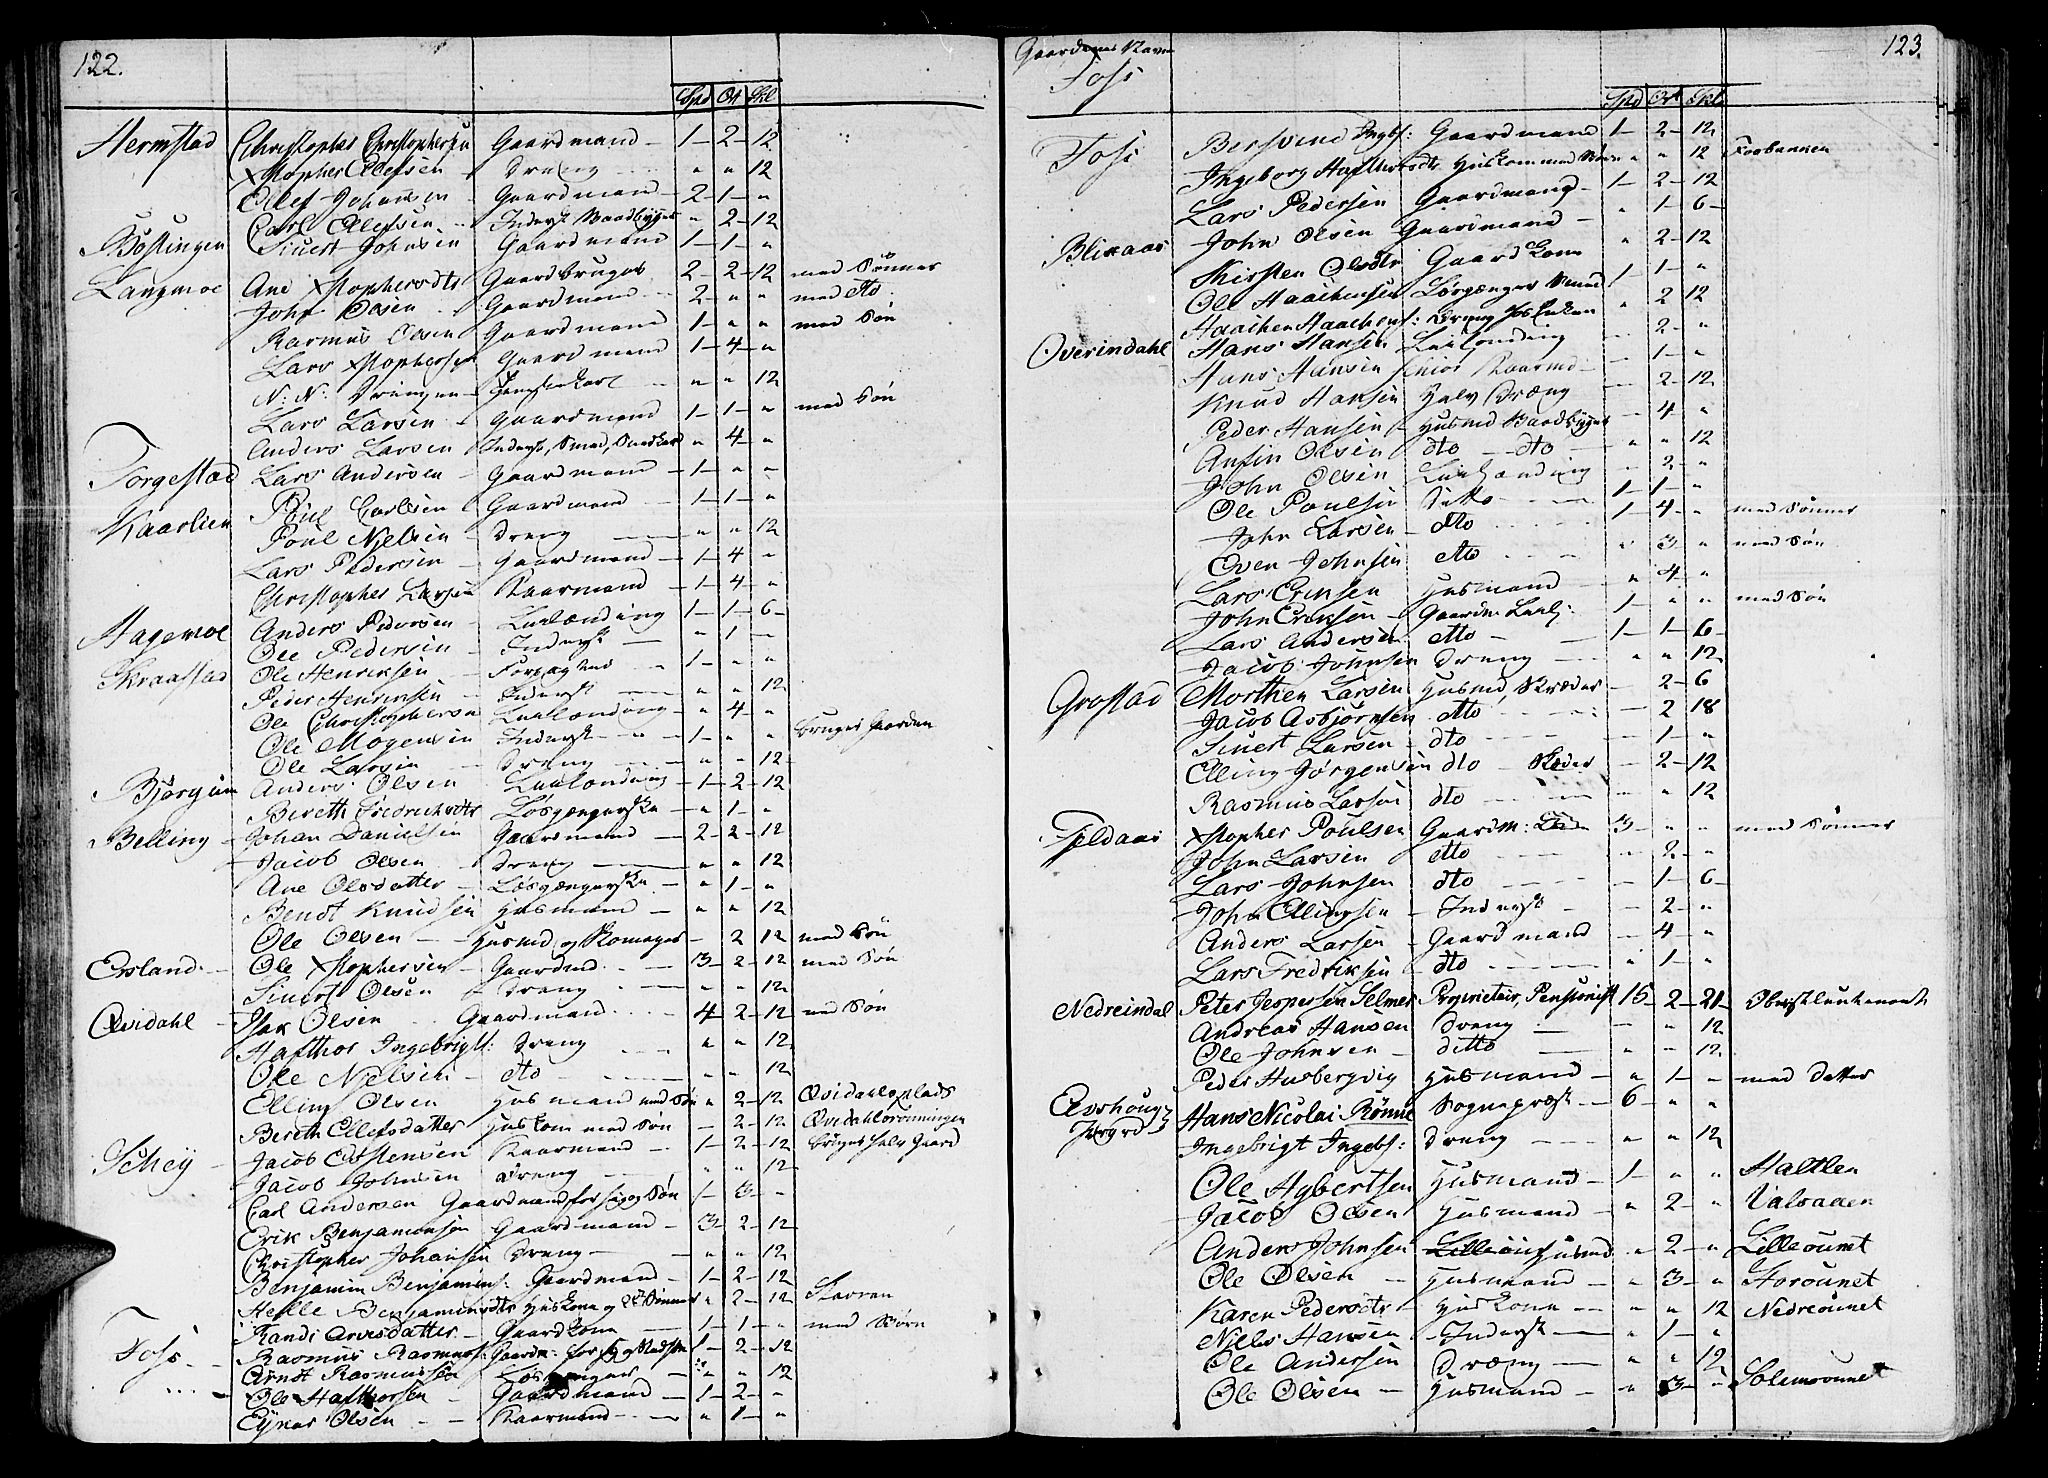 122.
Spd Ort Skl
Hermstad Christopher Christophersen Gaardmand 1 - 2 - 12
Xstopher Olefsen Dreng " " 12
Olef Johansen Gaardmand 2 - 1 - "
Carl Olefsen Inderst Baadbygger " 2 - 12
Bøstingen Siuert Johnsen Gaardmand 1 - 1 - "
Langmoe Ane Xstophersdtr Gaardbruger 2 - 2 - 12 med Sønner
John Olsen Gaardmand 2 - " " med dto
Rasmus Olsen Gaardmand 1 - " " med Søn
Lars Xstophersen Gaardmand 1 - 4 - "
N: N: Drengen Tienestekarl " " 12
Lars Larsen Gaardmand 1 - 1 - " med Søn
Anders Larsen Inderst, Smed, Snedker " 4 - "
Torgestad Lars Andersen Gaardmand 1 - " "
Poul Carlsen Gaardmand 1 - 1 - "
Kaarlien Poul Nielsen Dreng " " 12
Lars Pedersen Gaardmand 1 - 4 - "
Christopher Larsen Kaarmand 1 - 4 - "
Hagemoe Anders Pedersen Leilænding 1 - 1 - 6
Ole Pedersen Inderst " 1 -
Skraastad Ole Henriksen 1 - " "
Peder Henriksen Inderst " " 12
Ole Christophersen Leilænding " 4 - "
Ole Mogensen Inderst 1 - " " bruger Gaarden
Ole Larsen Dreng " " 12
Bjørgum Anders Olsen Leilænding 1 - 2 - 12
Bereth Fredrichsdtr Løsgængerske " 1 - "
Belling Johan Danielsen Gaardmand 2 - 2 - 12
Jacob Olsen Dreng " " 12
Ane Olsdatter Løsgængerske " 1 - "
Bendt Knudsen Husmand " " 12
Ole Olsen Husmd og Skomager 2 12 med Søn
Ersland Ole Xstophersen Gaardmd 3 - 2 - 12 med Søn
Siuert Olsen Dreng " " 12
Qvidahl Isak Olsen Gaardmand 4 - 2 - 12 med Søn
Hafthor Ingebrigts: Dreng " " 12
Ole Nielsen dto " " 12
Elling Olsen Husmand med Søn " 2 - 12 Qvidahlsplads
Bereth Ellefsdatter Huskone med Søn 2 - 12 Qvidahlsrønningen
Schey Jacob Carstensen Kaarmand 1 - 2 - 12 bruger halv Gaard
Jacob Johnsen Dreng " " 12
Carl Andersen Gaardmand for sig og Søn 1 - 3 - "
Erik Benjaminsen Gaardmand 3 - 2 - 12
Christopher Johansen Dreng " " 12
Benjamin Benjamins: Gaardmand 1 - 2 - 12
Helle Benjaminsdtr Huskone og 2de Sønner " 2 - 12 Stavran
Randi Arvesdatter Gaardkone 1 - 1 - " med Børn
Foss Rasmus Rasmuss: Gaardm: for sig og 1 - 2 - 12
Arndt Rasmussen Løsgænger " 12
Ole Hafthorsen Gaardmand 1 - 2 - "
Eynar Olsen Kaarmand " 1 - "
Gaardenes Navn 123.
Foss
Spd Ort Skl
Foss Bersvend Ingbs: Gaardmand 1 - 2 - 12
Ingeborg Hafthorsdtr Huskone med Børn " " 12 Fosbakken
Lars Pedersen Gaardmand 1 - 2 - 12
Blikaas John Olsen Gaardmand " 1 - 6
Kirsten Olsdtr Gaardkone " 2 - 12
Ole Haachensen Løsgænger Smed 1 - 1 - "
Haachen Haachens: Dreng hos Enken " 2 12
Overindahl Hans Hansen Leilænding 2 - "
Hans Hansen senior Kaarmd 1 - "
Knud Hansen Halv Dræng 2 - 12
Peder Hansen Husmd Baadbygger 4 "
Anfin Olsen dto dto " " 12
John Olsen Leilænding 2 - "
Ole Poulsen Ditto 1 - 1 - "
John Larsen dto 1 - 4 - " med Sønner
Even Johnsen dto " 3 " med Søn
Lars Eriksen Husmand " 4 "
John Eriksen Gaardm: Leil: 1 - " " med Søn
Lars Andersen dto 1 - 1 - 6
Jacob Johnsen Dreng " " 12
Grøstad Morthen Larsen Husmd, Skræder 2 - 6
Jacob Asbjørnsen dto 2 18
Siuert Larsen dto 1 - "
Elling Jørgensen dto 2 - 12
Rasmus Larsen dto " 12
Feldaas Xstopher Poulsen Gaardm: 3 - " " med Sønner
John Larsen dto 2 - "
Lars Johnsen dto 1 - 6
John Ellingsen Inderst 2 - "
Anders Larsen Gaardmand 4 - "
Lars Fredriksen dto " 1 - "
Nedreindal Peter Jespersen Selmer Proprietair, Pensionist 15 - 2 - 21 Obristlieutenant
Andreas Hansen Dreng " " 12
Ole Johnsen ditto " " 12
Peder Husbergvig Husmand " 1 - " med Datter
Hans Nicolai Rønne Sognepræst 6 - " "
Ingebrigt Ingebs: Dreng " " 12
Ole Hybertsen Husmand 1 - " " Haltlen
Jacob Olsen Husmand " 2 - " Valsaaen
Anders Johnsen Husmd " 2 - " Lilleøunet
Ole Olsen Husmand " 3 - " Storøunet
Karen Pedersdtr Huskone " " 12 Nedreøunet
Niels Hansen Inderst " 1 - "
Ole Andersen Dræng " " 12
Ole Olsen Husmand " 3 - " Solemsøunet